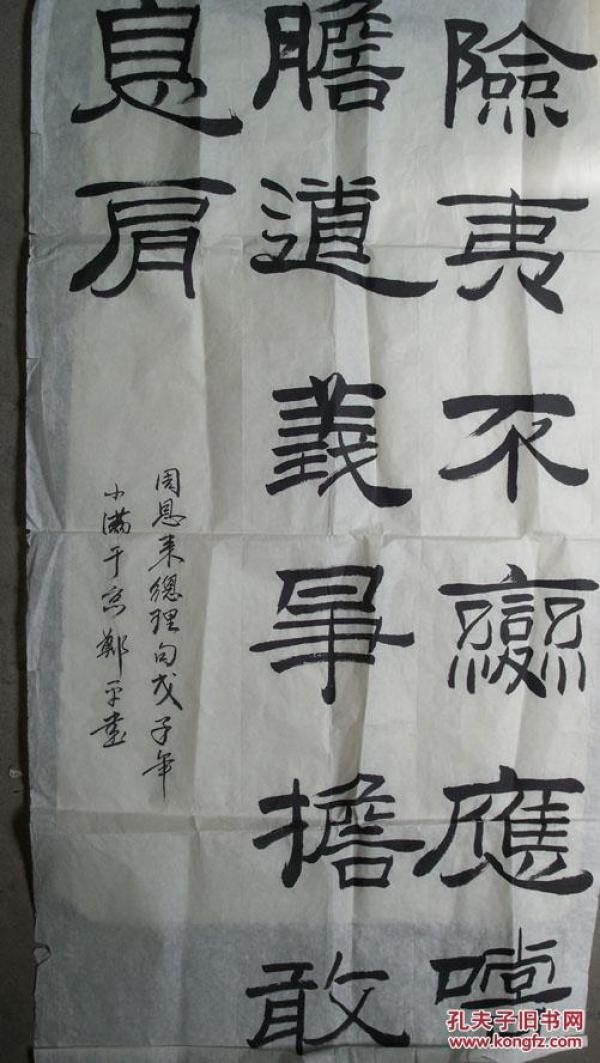 險夷不變應嚐
膽道義爭擔敢
息肩
周恩来總理句戊子年
小滿于京鄭平書
孔夫子旧书网
www.kongfz.com